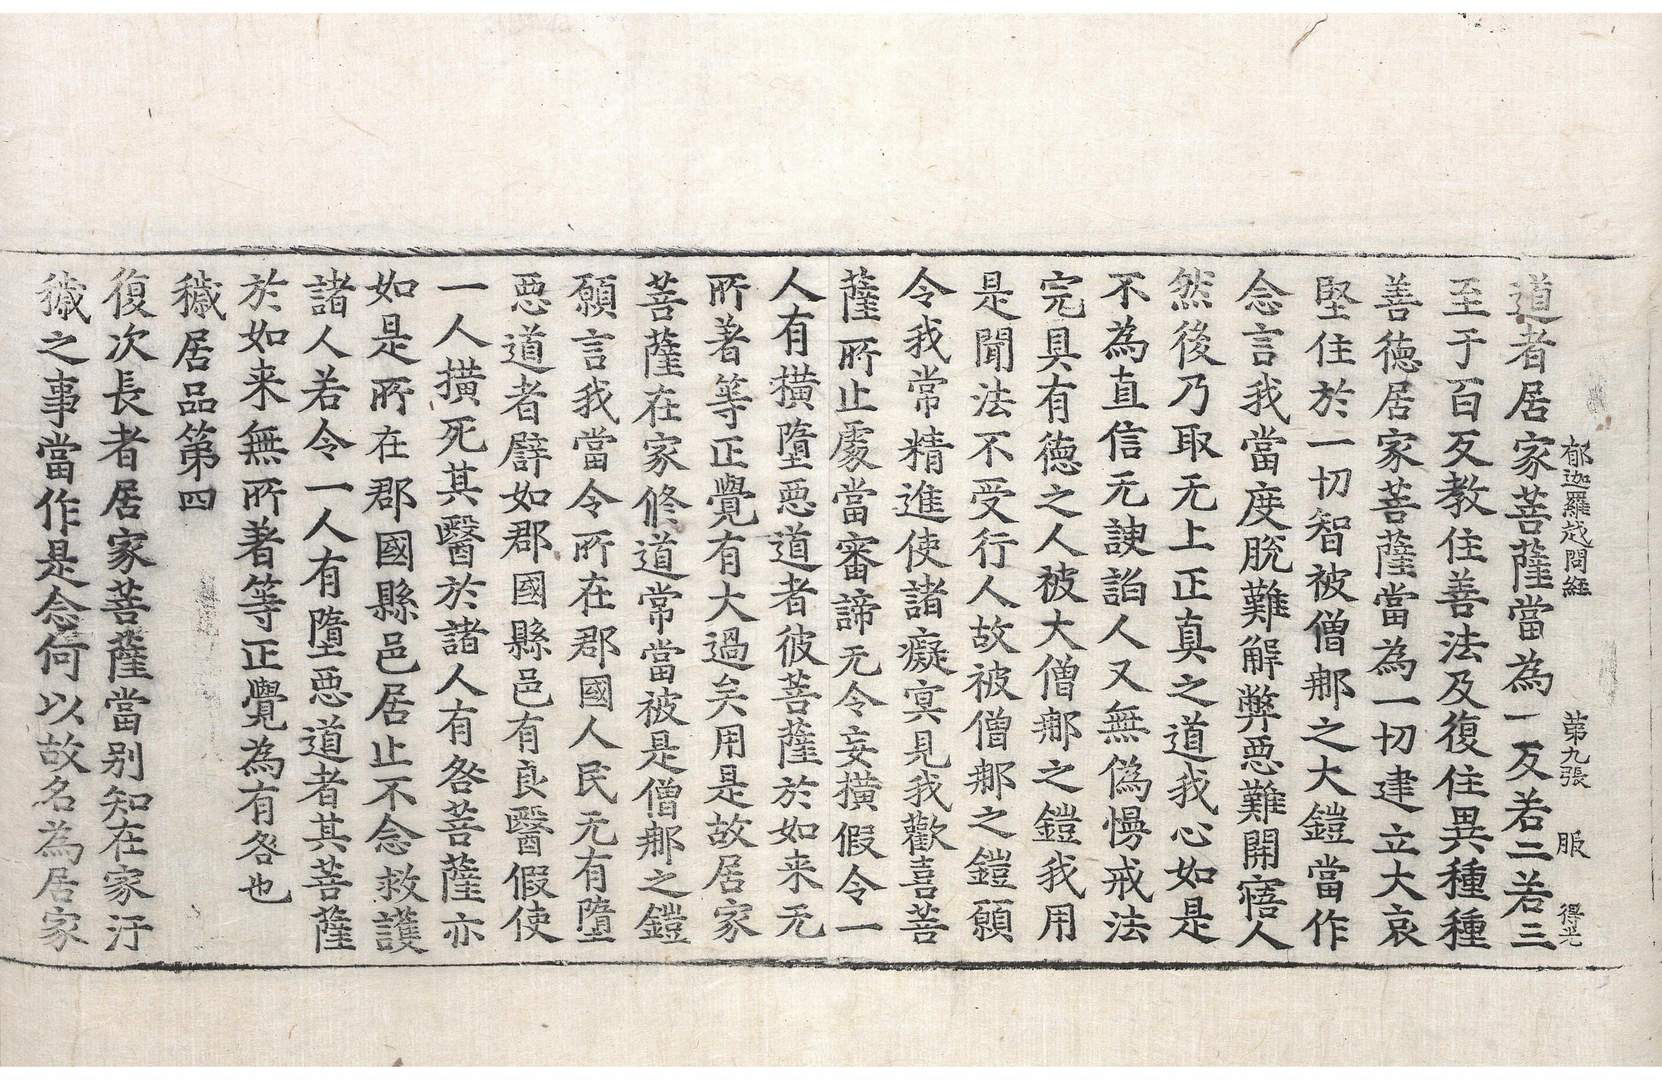 郁迦羅越問經 第九張 服 得光
道者居家菩薩當為一反若二若三
至于百反教住善法及復住異種種
善德居家菩薩當為一切建立大哀
堅住於一切智被僧那之大鎧當作
念言我當度脫難解弊惡難開寤人
然後乃取无上正真之道我心如是
不為直信无諛諂人又無偽慢戒法
完具有德之人被大僧那之鎧我用
是聞法不受行人故被僧那之鎧願
令我常精進使諸癡冥見我歡喜菩
薩所止處當審諦无令妄橫假令一
人有橫墮惡道者彼菩薩於如来无
所著等正覺有大過矣用是故居家
菩薩在家修道常當被是僧那之鎧
願言我當令所在郡國人民无有墮
惡道者譬如郡國縣邑有良醫假使
一人橫死其醫於諸人有咎菩薩亦
如是所在郡國縣邑居止不念救護
諸人若令一人有墮惡道者其菩薩
於如来無所著等正覺為有咎也
穢居品第四
復次長者居家菩薩當别知在家汙
穢之事當作是念何以故名為居家